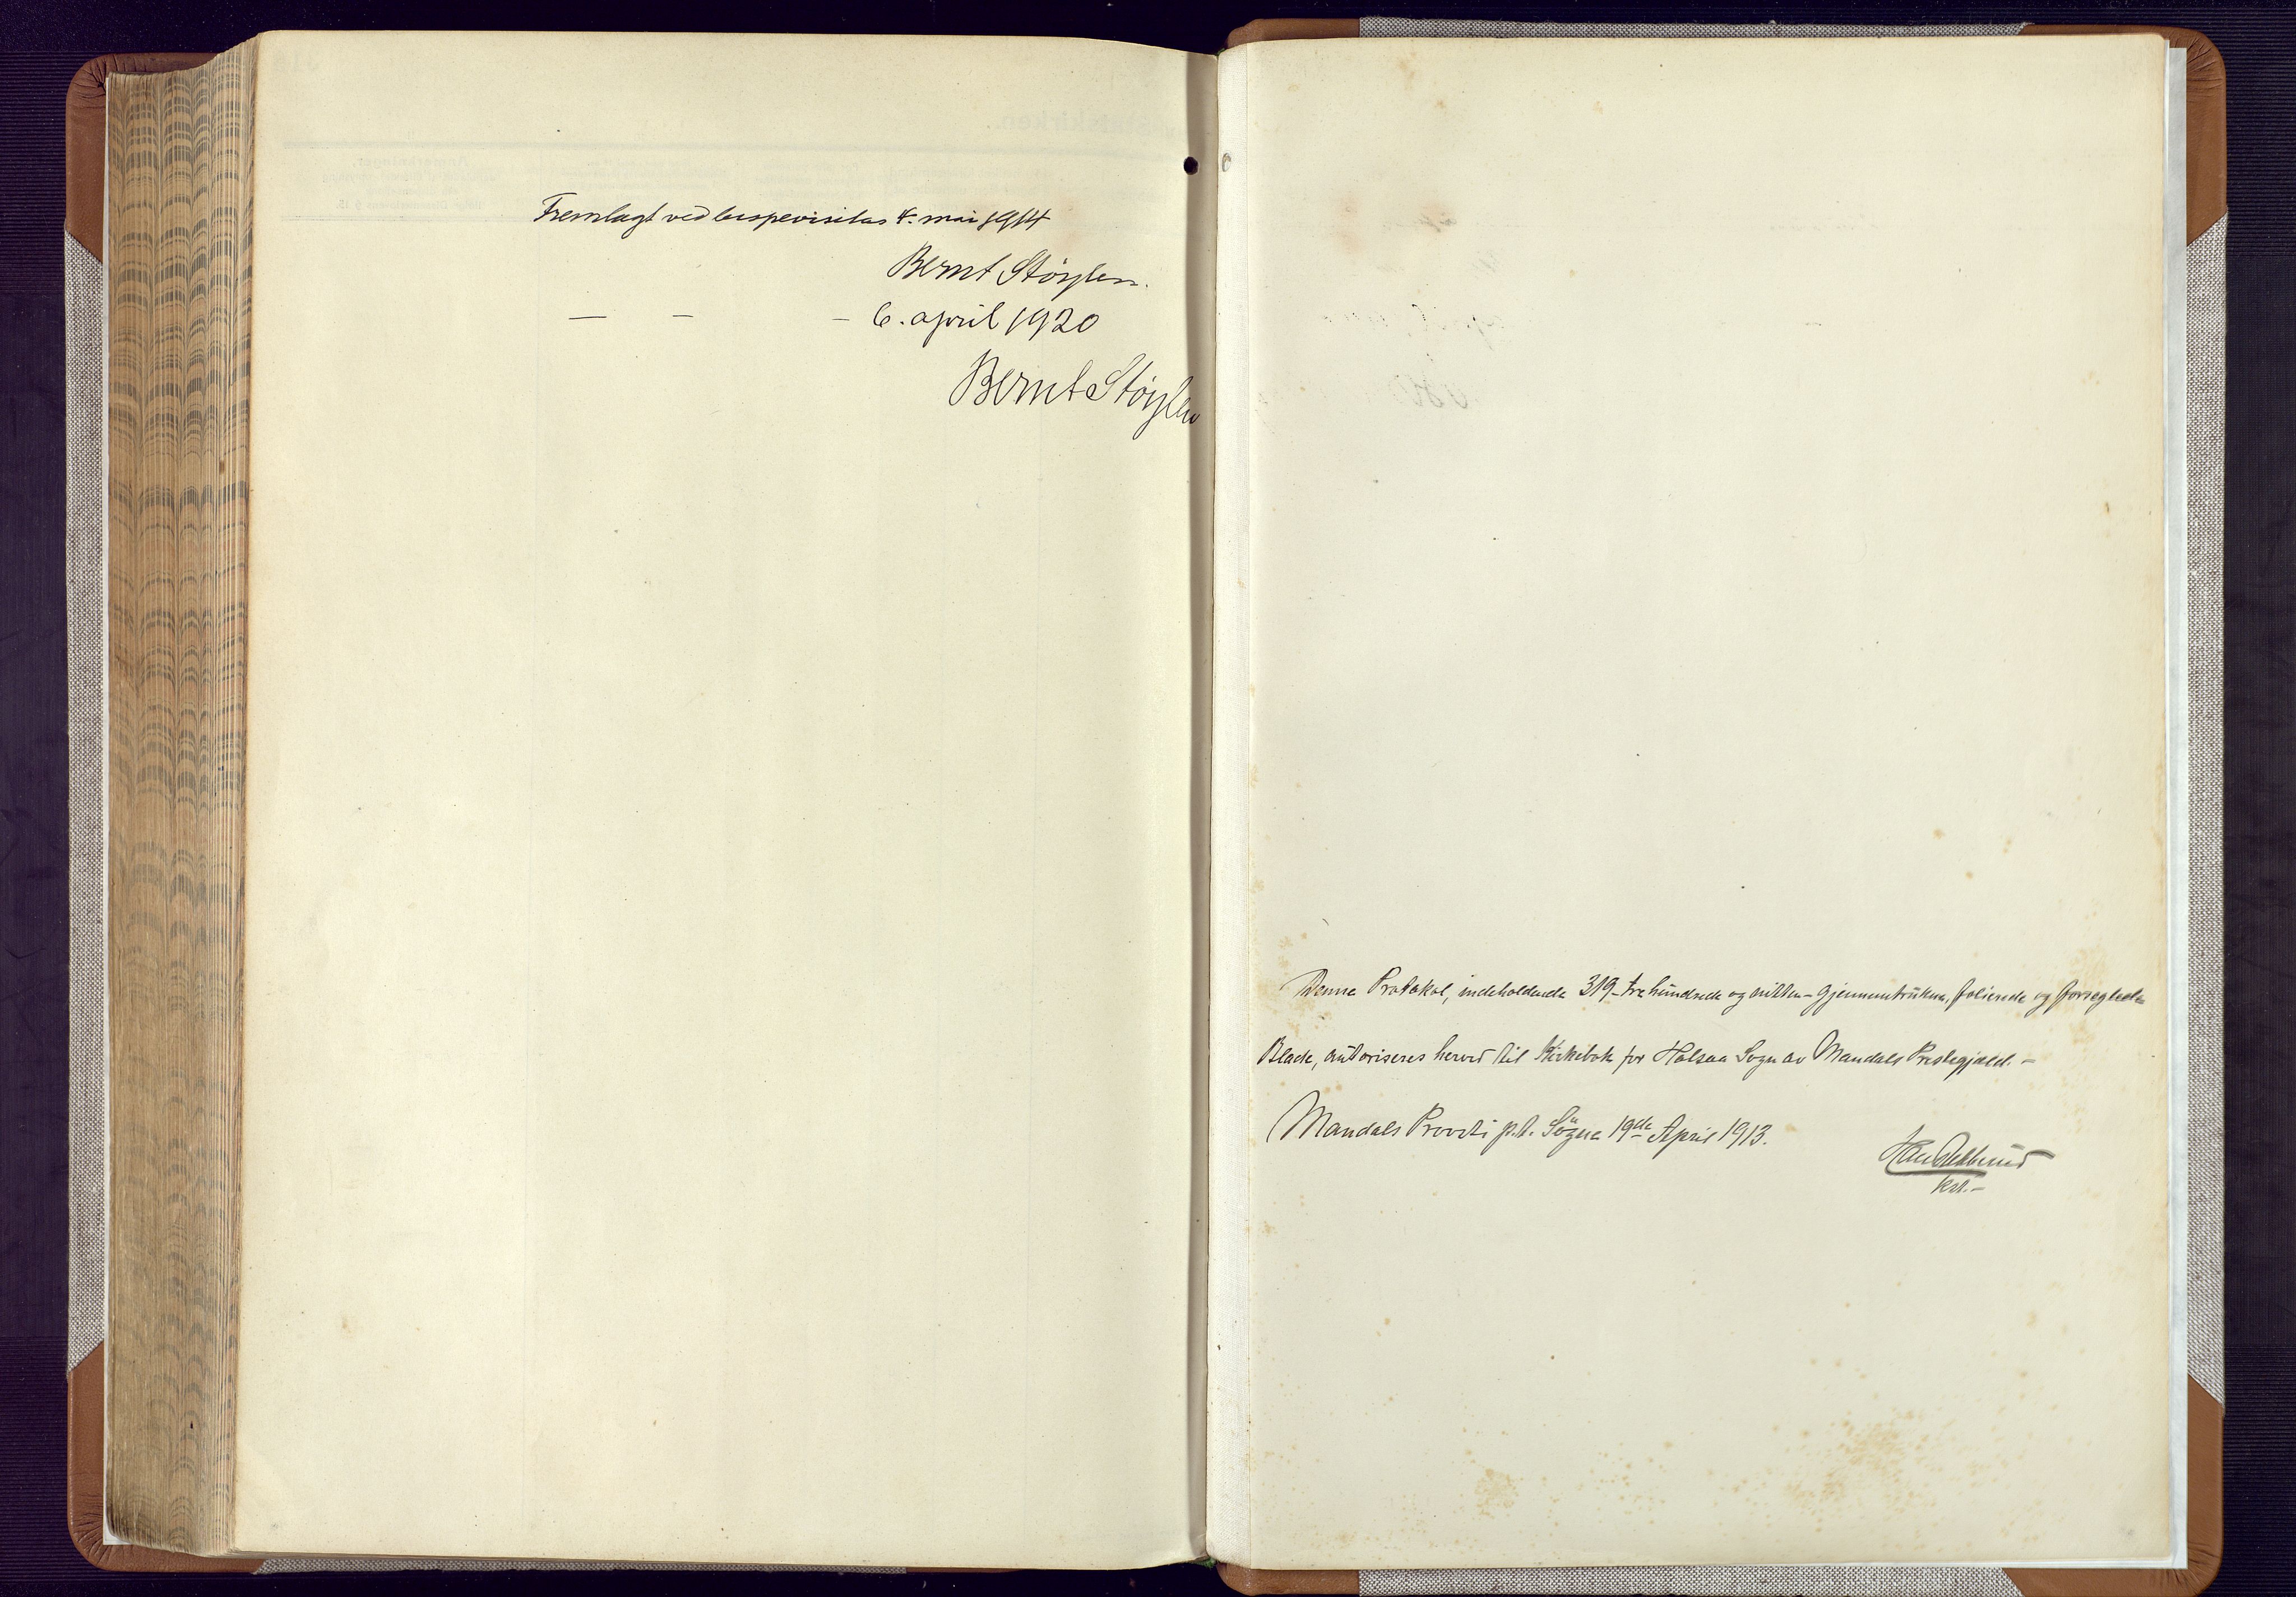 Fremlagt ved bispevisitas 4. mai 1914
Bernt Støylen.
— — — 6. april 1920
Bernt Støylen
Denne Protokol, indeholdende 319 - tre hundrede og nitten - gjennemtrukne, folierede og forseglede
Blade, autoriseres herved til Kirkebok for Halsaa Sogn av Mandals Prestegjæld. -
Mandals Provsti p.t. Søgne 19de April 1913.
kst. -